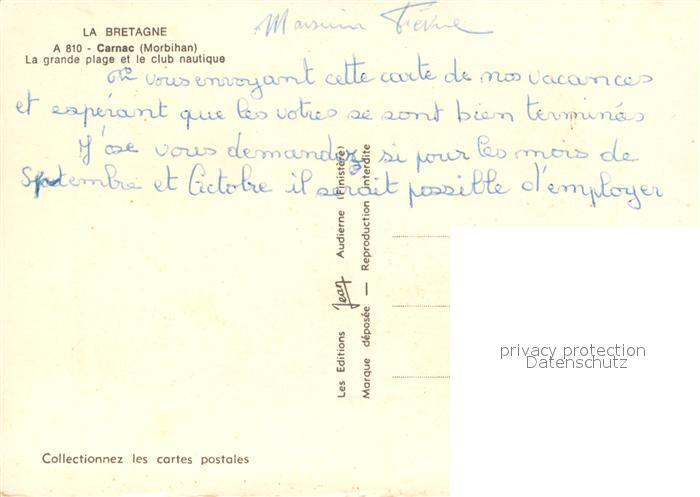 LA BRETAGNE
A 810 - Carnac (Morbihan)
La grande plage et le club nautique
Monsieur
En vous envoyant cette carte de nos vacances
et espérant que les votres se sont bien terminés
J'ose vous demander si pour les mois de
Septembre et Octobre il serait possible d'employer
Les Editions Jean Audierne (Finistère)
Marque déposée — Reproduction interdite
privacy protection
Datenschutz
Collectionnez les cartes postales